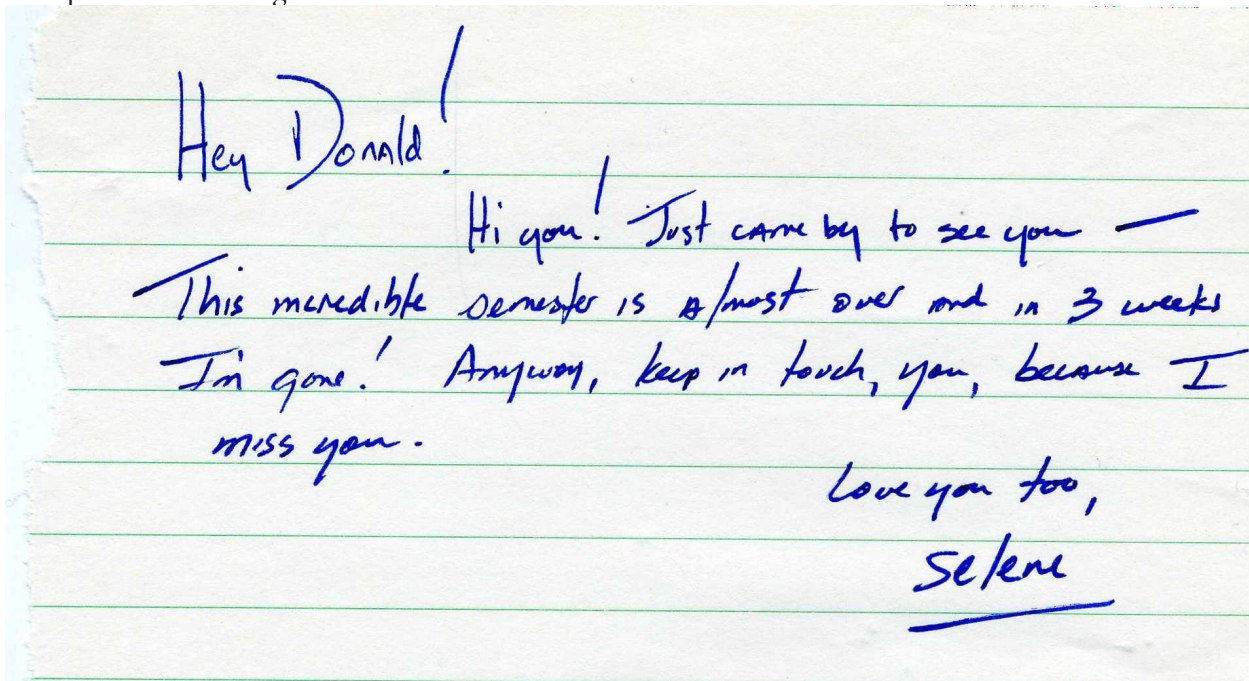 Hey Donald!
Hi you! Just came by to see you —
This incredible semester is almost over and in 3 weeks
I'm gone! Anyway, keep in touch, you, because I
miss you.
Love you too,
Selene